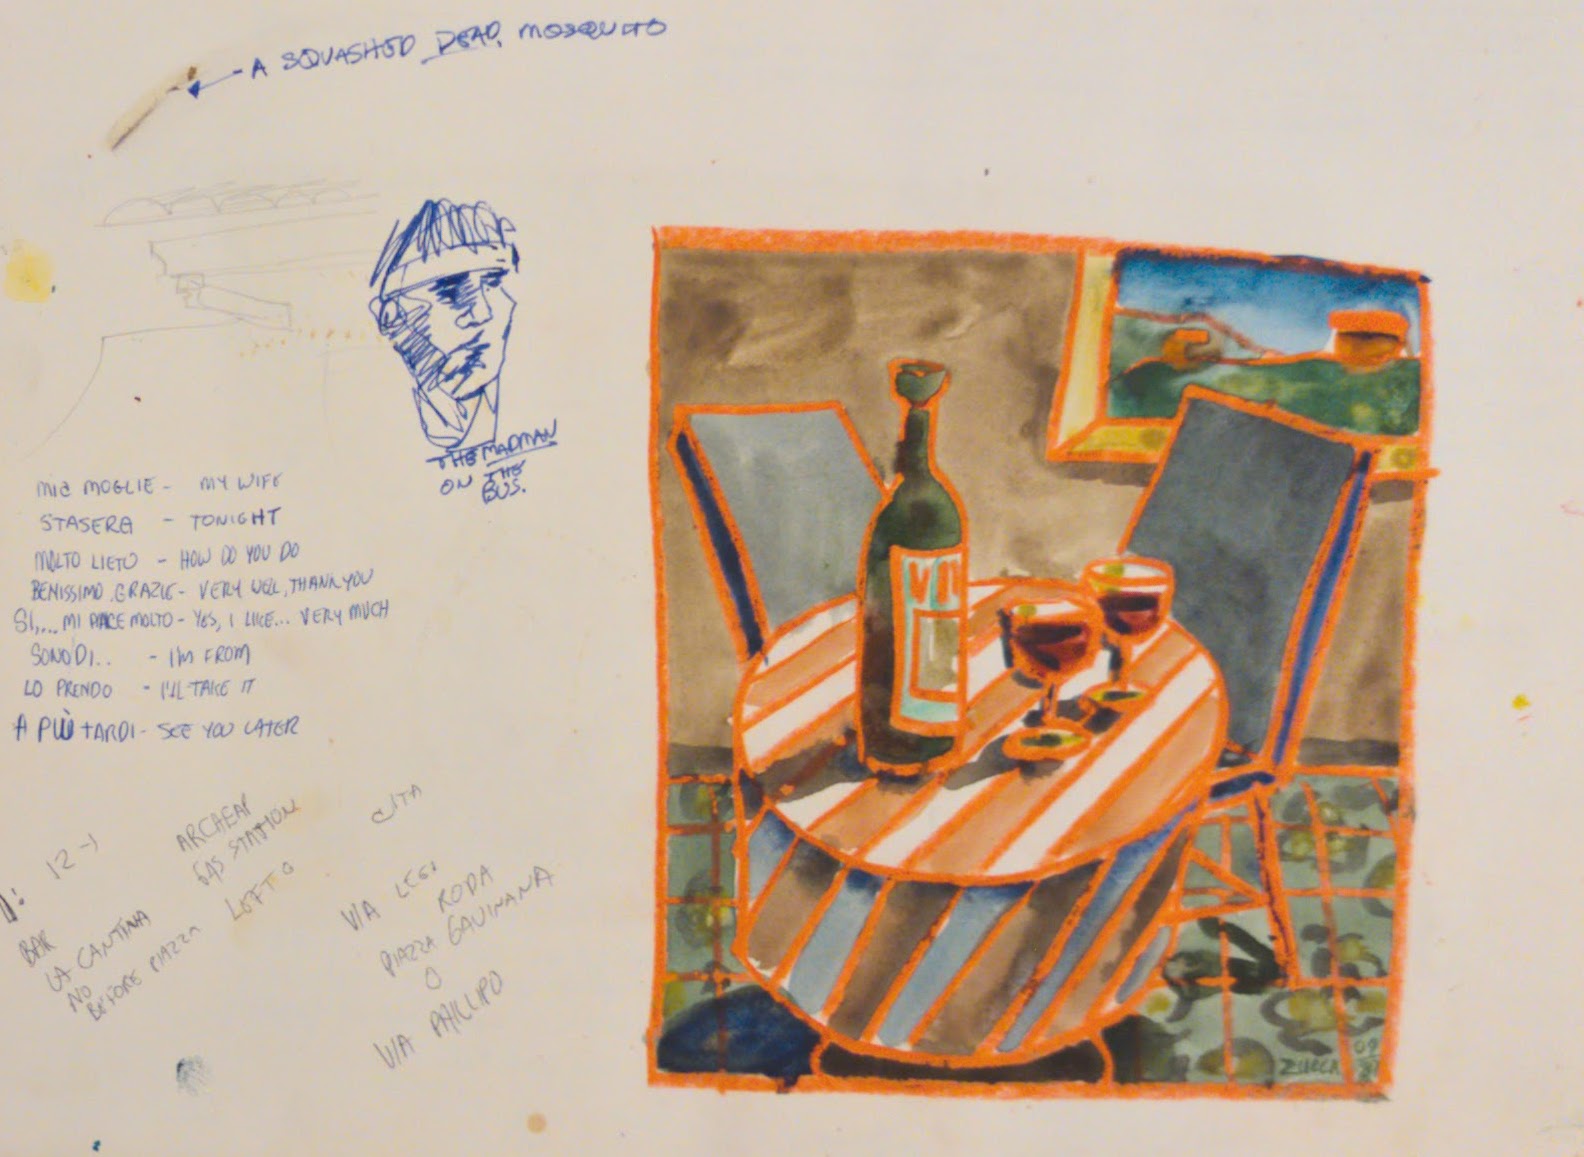 A SQUASHED DEAD MOSQUITO
THE MADMAN
ON THE
BUS.
MIA MOGLIE - MY WIFE
STASERA - TONIGHT
MOLTO LIETO - HOW DO YOU DO
BENISSIMO GRAZIE - VERY WELL, THANK YOU
SI,... MI PIACE MOLTO - YES, I LIKE... VERY MUCH
SONO DI.. - I'M FROM
LO PRENDO - I'LL TAKE IT
A PIÙ TARDI - SEE YOU LATER
12-1
GAS STATION
BAR
LA CANTINA
NO
BEFORE PIAZZA
VIA
RODA
PIAZZA GAVINANA
O
VIA
VN
ZUCCA